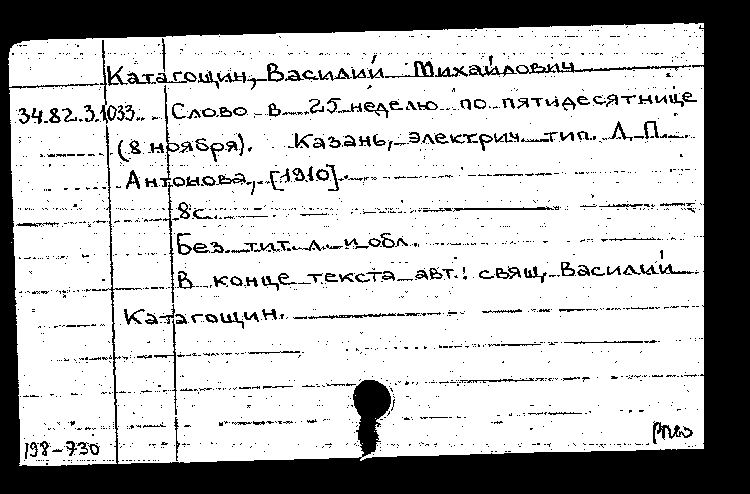 Катагощин, Василий Михайлович
34.82.3.1033. Слово в 25 неделю по пятидесятнице
(8 ноября). Казань, электрич. тип. Л. П.
Антонова, [1910].
8с.
Без тит. л. и обл.
В конце текста авт.: свящ. Василий
Катагощин.
198-730